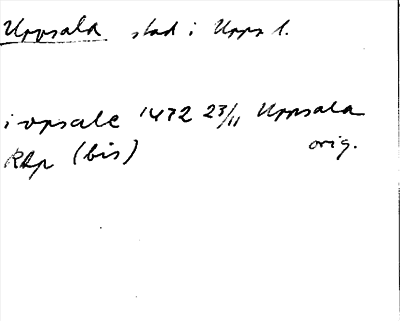 Uppsala stad i Upps l.
i vpsale 1472 23/11 Uppsala
RAp (bis) orig.